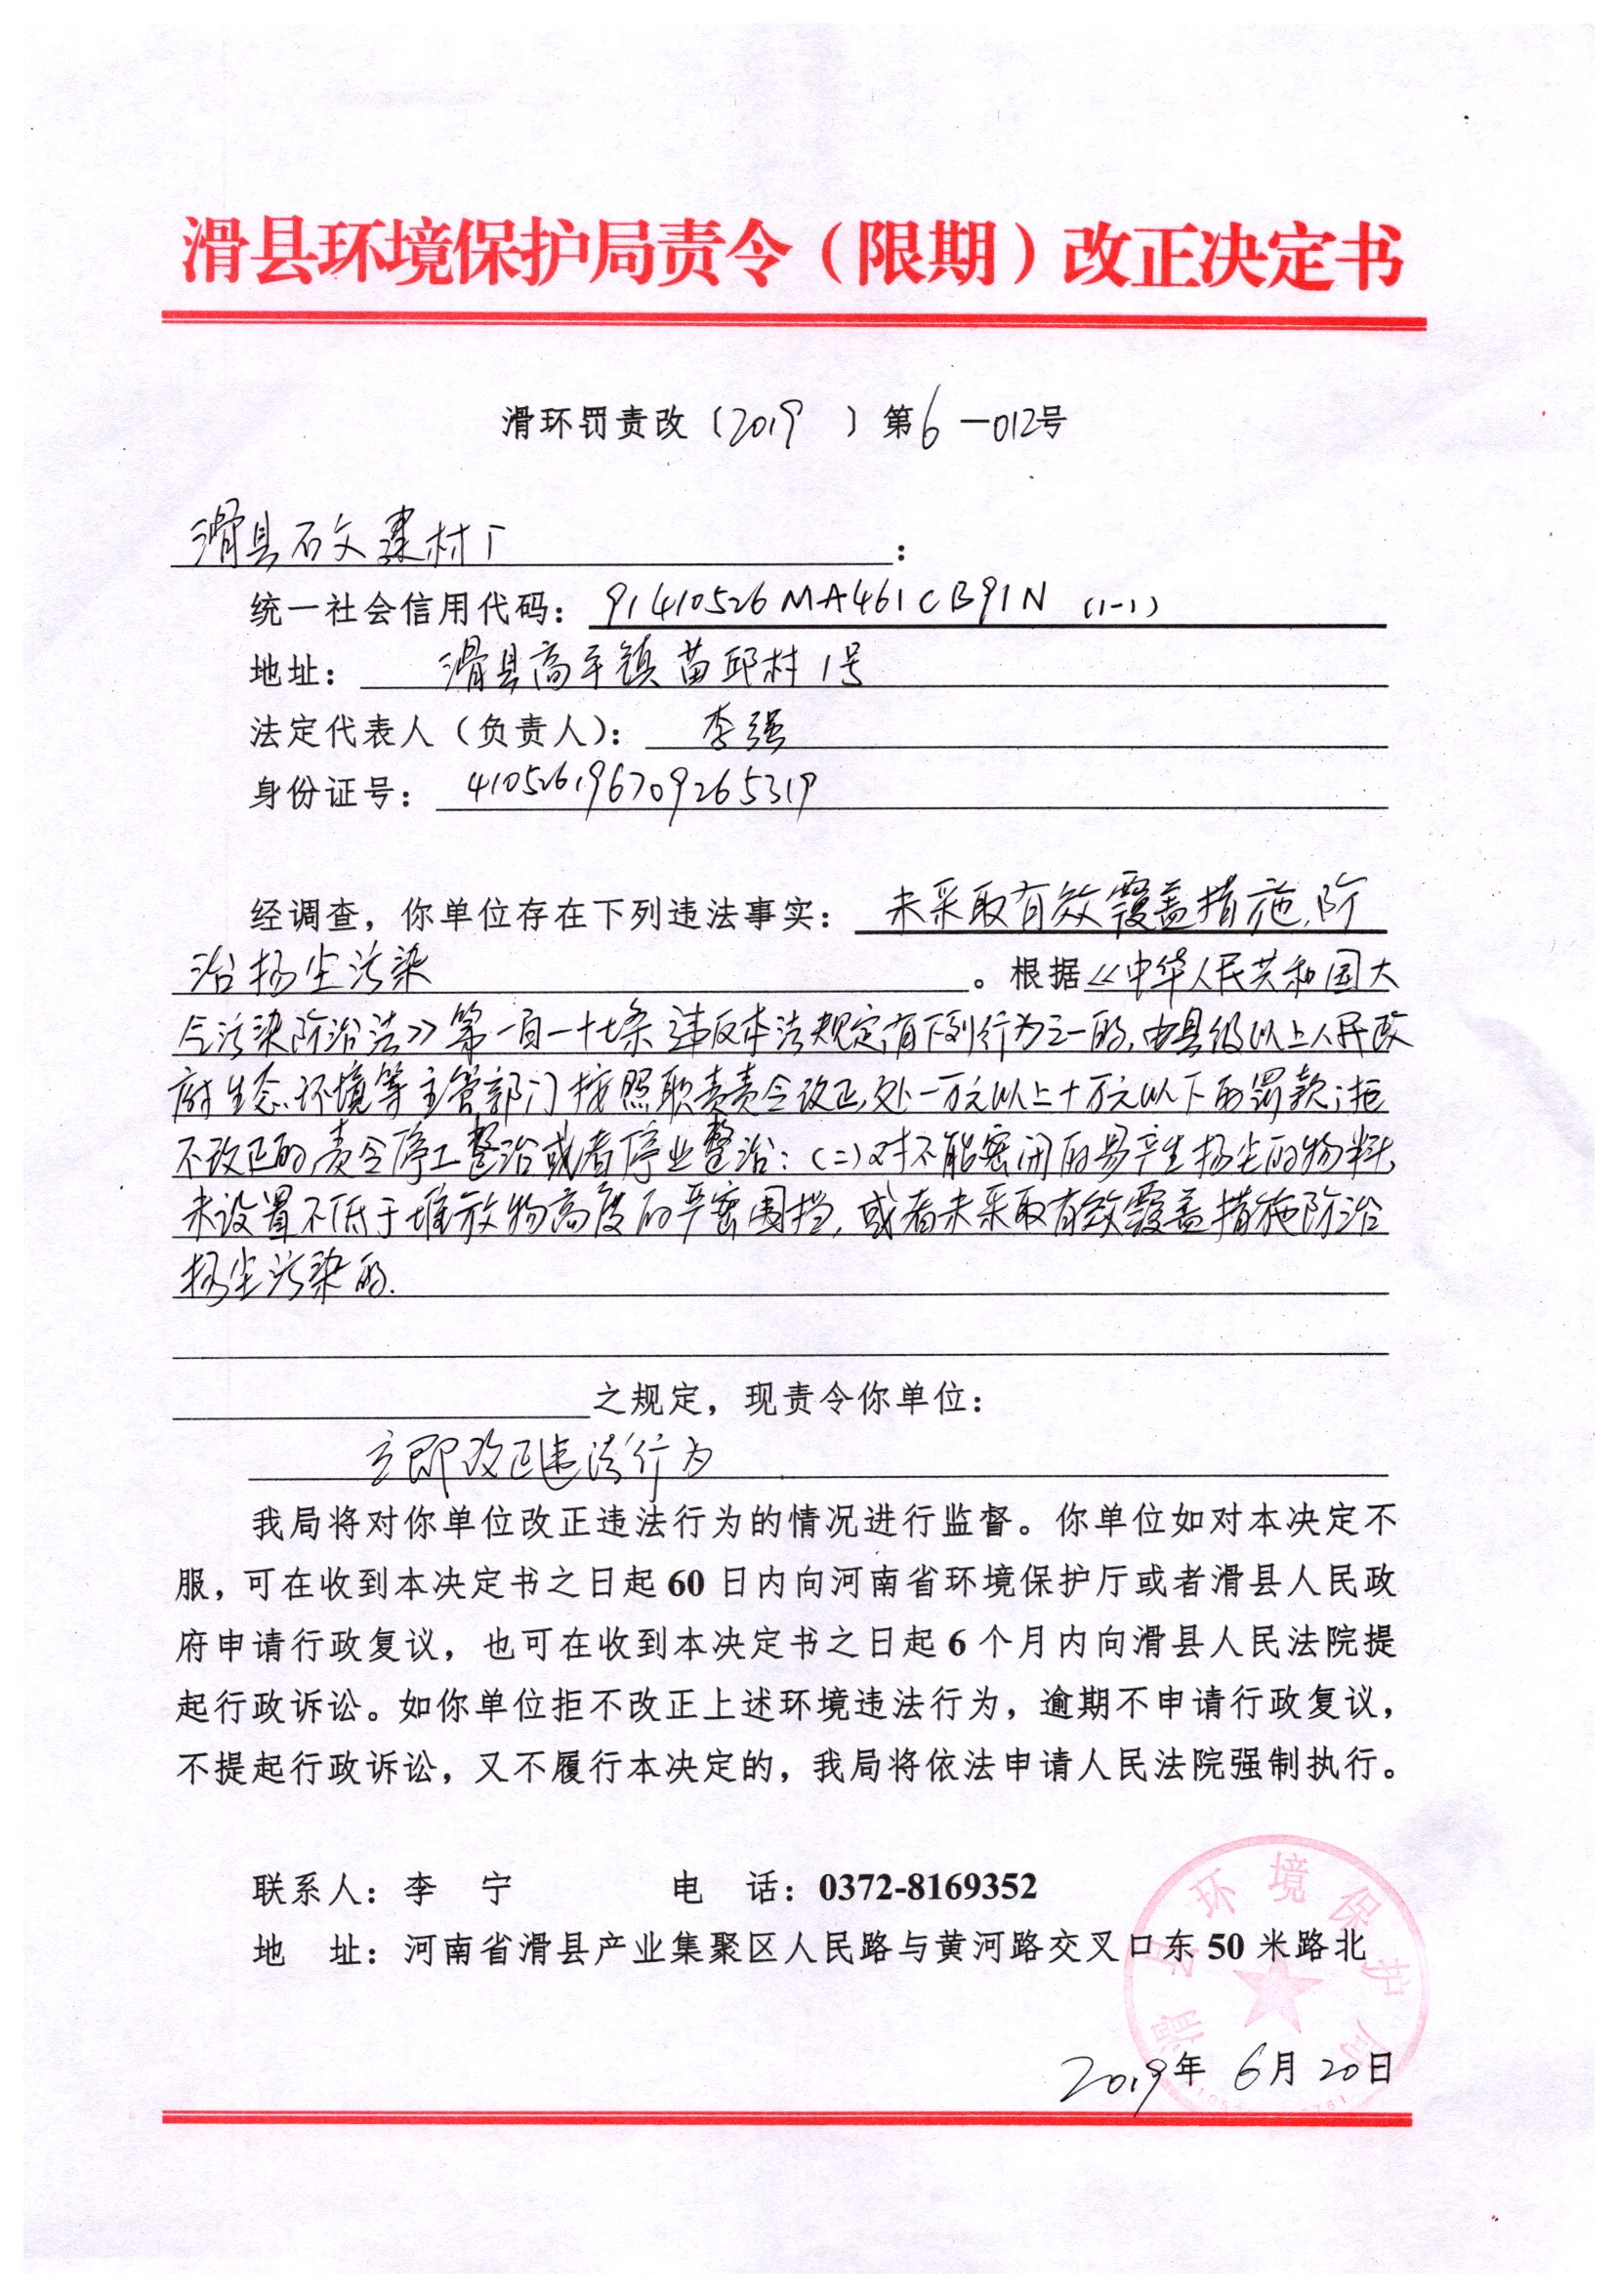 滑县环境保护局责令（限期）改正决定书
滑环罚责改〔2019 〕第6-012号
滑县石文建材厂：
统一社会信用代码：91410526MA461CB91N (1-1)
地址：滑县高平镇苗邱村1号
法定代表人（负责人）：李强
身份证号：410526196709265319
经调查，你单位存在下列违法事实：未采取有效覆盖措施，防
治扬尘污染。根据《中华人民共和国大
气污染防治法》第一百一十七条 违反本法规定，有下列行为之一的，由县级以上人民政
府生态环境等主管部门按照职责责令改正，处一万元以上十万元以下的罚款；拒
不改正的，责令停工整治或者停业整治：（二）对不能密闭的易产生扬尘的物料，
未设置不低于堆放物高度的严密围挡，或者未采取有效覆盖措施防治
扬尘污染的.
之规定，现责令你单位：
立即改正违法行为
我局将对你单位改正违法行为的情况进行监督。你单位如对本决定不
服，可在收到本决定书之日起60日内向河南省环境保护厅或者滑县人民政
府申请行政复议，也可在收到本决定书之日起6个月内向滑县人民法院提
起行政诉讼。如你单位拒不改正上述环境违法行为，逾期不申请行政复议，
不提起行政诉讼，又不履行本决定的，我局将依法申请人民法院强制执行。
联系人：李 宁 电 话：0372-8169352
地 址：河南省滑县产业集聚区人民路与黄河路交叉口东50米路北
滑县环境保护局
2019年6月20日